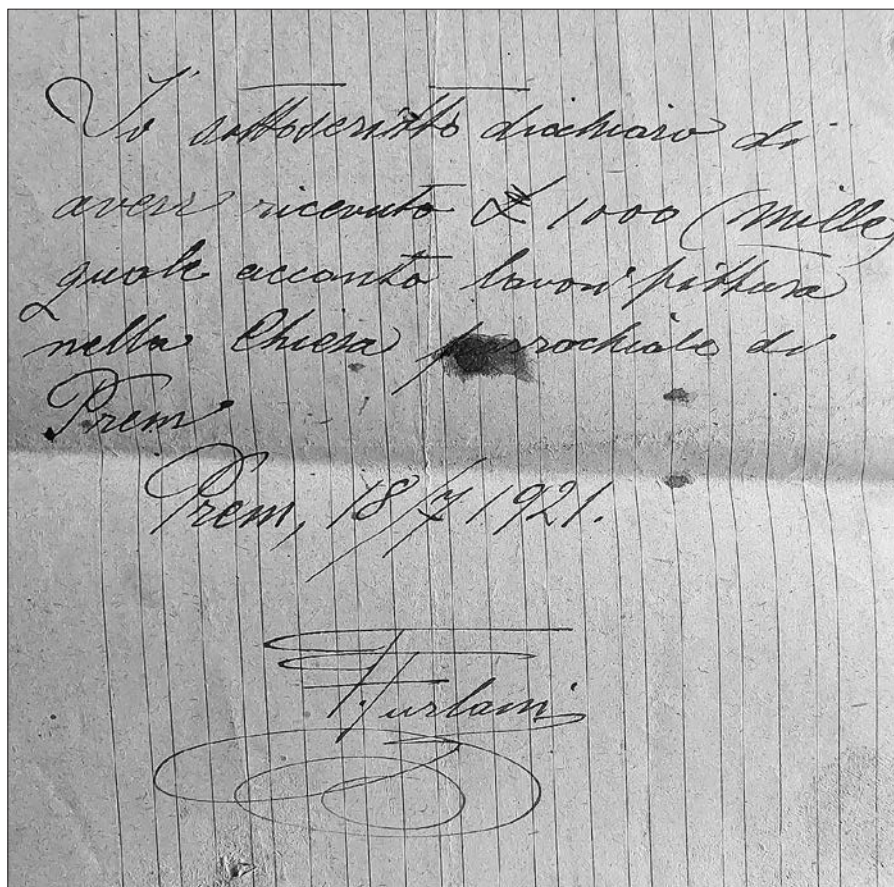 Io sottoscritto dichiaro di
avere ricevuto £ 1000 (mille)
quale acconto lavori pittura
nella Chiesa parrochiale di
Prem.
Prem, 18/7 1921.
Furlani